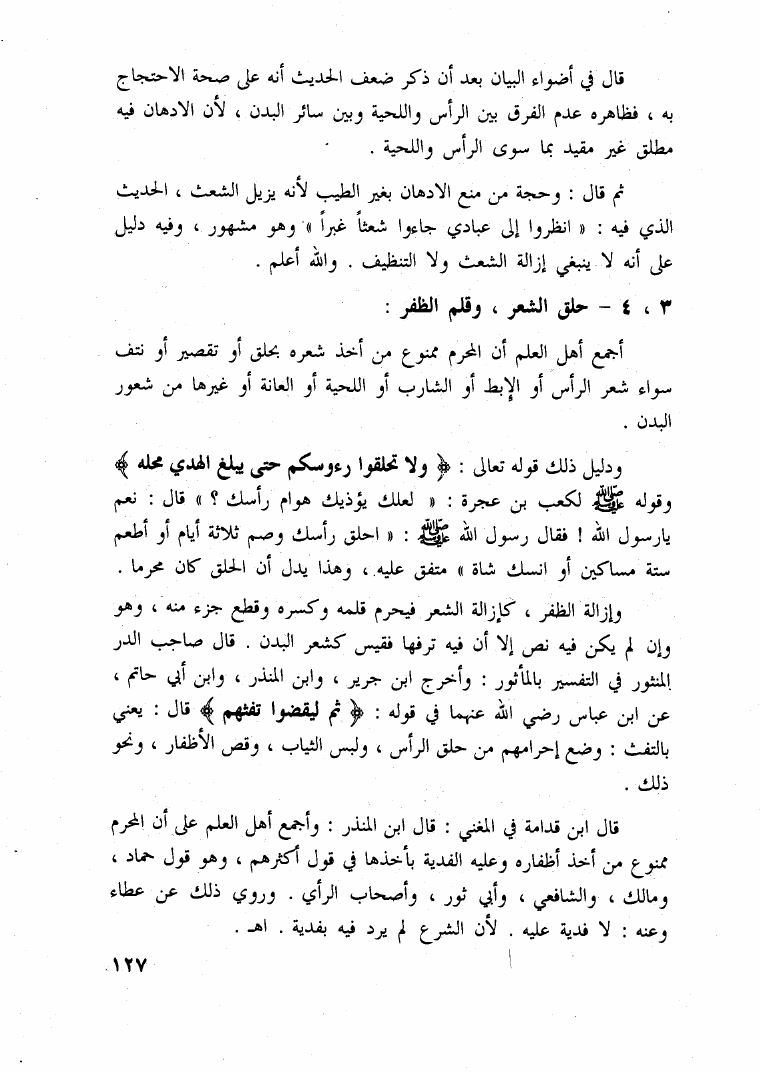 قال في أضواء البيان بعد أن ذكر ضعف الحديث أنه على صحة الاحتجاج
به ، فظاهره عدم الفرق بين الرأس واللحية وبين سائر البدن ، لأن الادهان فيه
مطلق غير مقيد بما سوى الرأس واللحية .
ثم قال : وحجة من منع الادهان بغير الطيب لأنه يزيل الشعث ، الحديث
الذي فيه : « انظروا إلى عبادي جاءوا شعثاً غبراً » وهو مشهور ، وفيه دليل
على أنه لا ينبغي إزالة الشعث ولا التنظيف . والله أعلم .
٣ ، ٤ – حلق الشعر ، وقلم الظفر :
أجمع أهل العلم أن المحرم ممنوع من أخذ شعره بحلق أو تقصير أو نتف
سواء شعر الرأس أو الإبط أو الشارب أو اللحية أو العانة أو غيرها من شعور
البدن .
ودليل ذلك قوله تعالى : ﴿ ولا تحلقوا رءوسكم حتى يبلغ الهدي محله ﴾
وقوله ﷺ لكعب بن عجرة : « لعلك يؤذيك هوام رأسك ؟ » قال : نعم
يارسول الله ! فقال رسول الله ﷺ : « احلق رأسك وصم ثلاثة أيام أو أطعم
ستة مساكين أو انسك شاة » متفق عليه ، وهذا يدل أن الحلق كان محرما .
وإزالة الظفر ، كإزالة الشعر فيحرم قلمه وكسره وقطع جزء منه ، وهو
وإن لم يكن فيه نص إلا أن فيه ترفها فقيس كشعر البدن . قال صاحب الدر
المنثور في التفسير بالمأثور : وأخرج ابن جرير ، وابن المنذر ، وابن أبي حاتم ،
عن ابن عباس رضي الله عنهما في قوله : ﴿ ثم ليقضوا تفثهم ﴾ قال : يعني
بالتفث : وضع إحرامهم من حلق الرأس ، ولبس الثياب ، وقص الأظفار ، ونحو
ذلك .
قال ابن قدامة في المغني : قال ابن المنذر : وأجمع أهل العلم على أن المحرم
ممنوع من أخذ أظفاره وعليه الفدية بأخذها في قول أكثرهم ، وهو قول حماد ،
ومالك ، والشافعي ، وأبي ثور ، وأصحاب الرأي . وروي ذلك عن عطاء
وعنه : لا فدية عليه . لأن الشرع لم يرد فيه بفدية . اهـ .
١٢٧